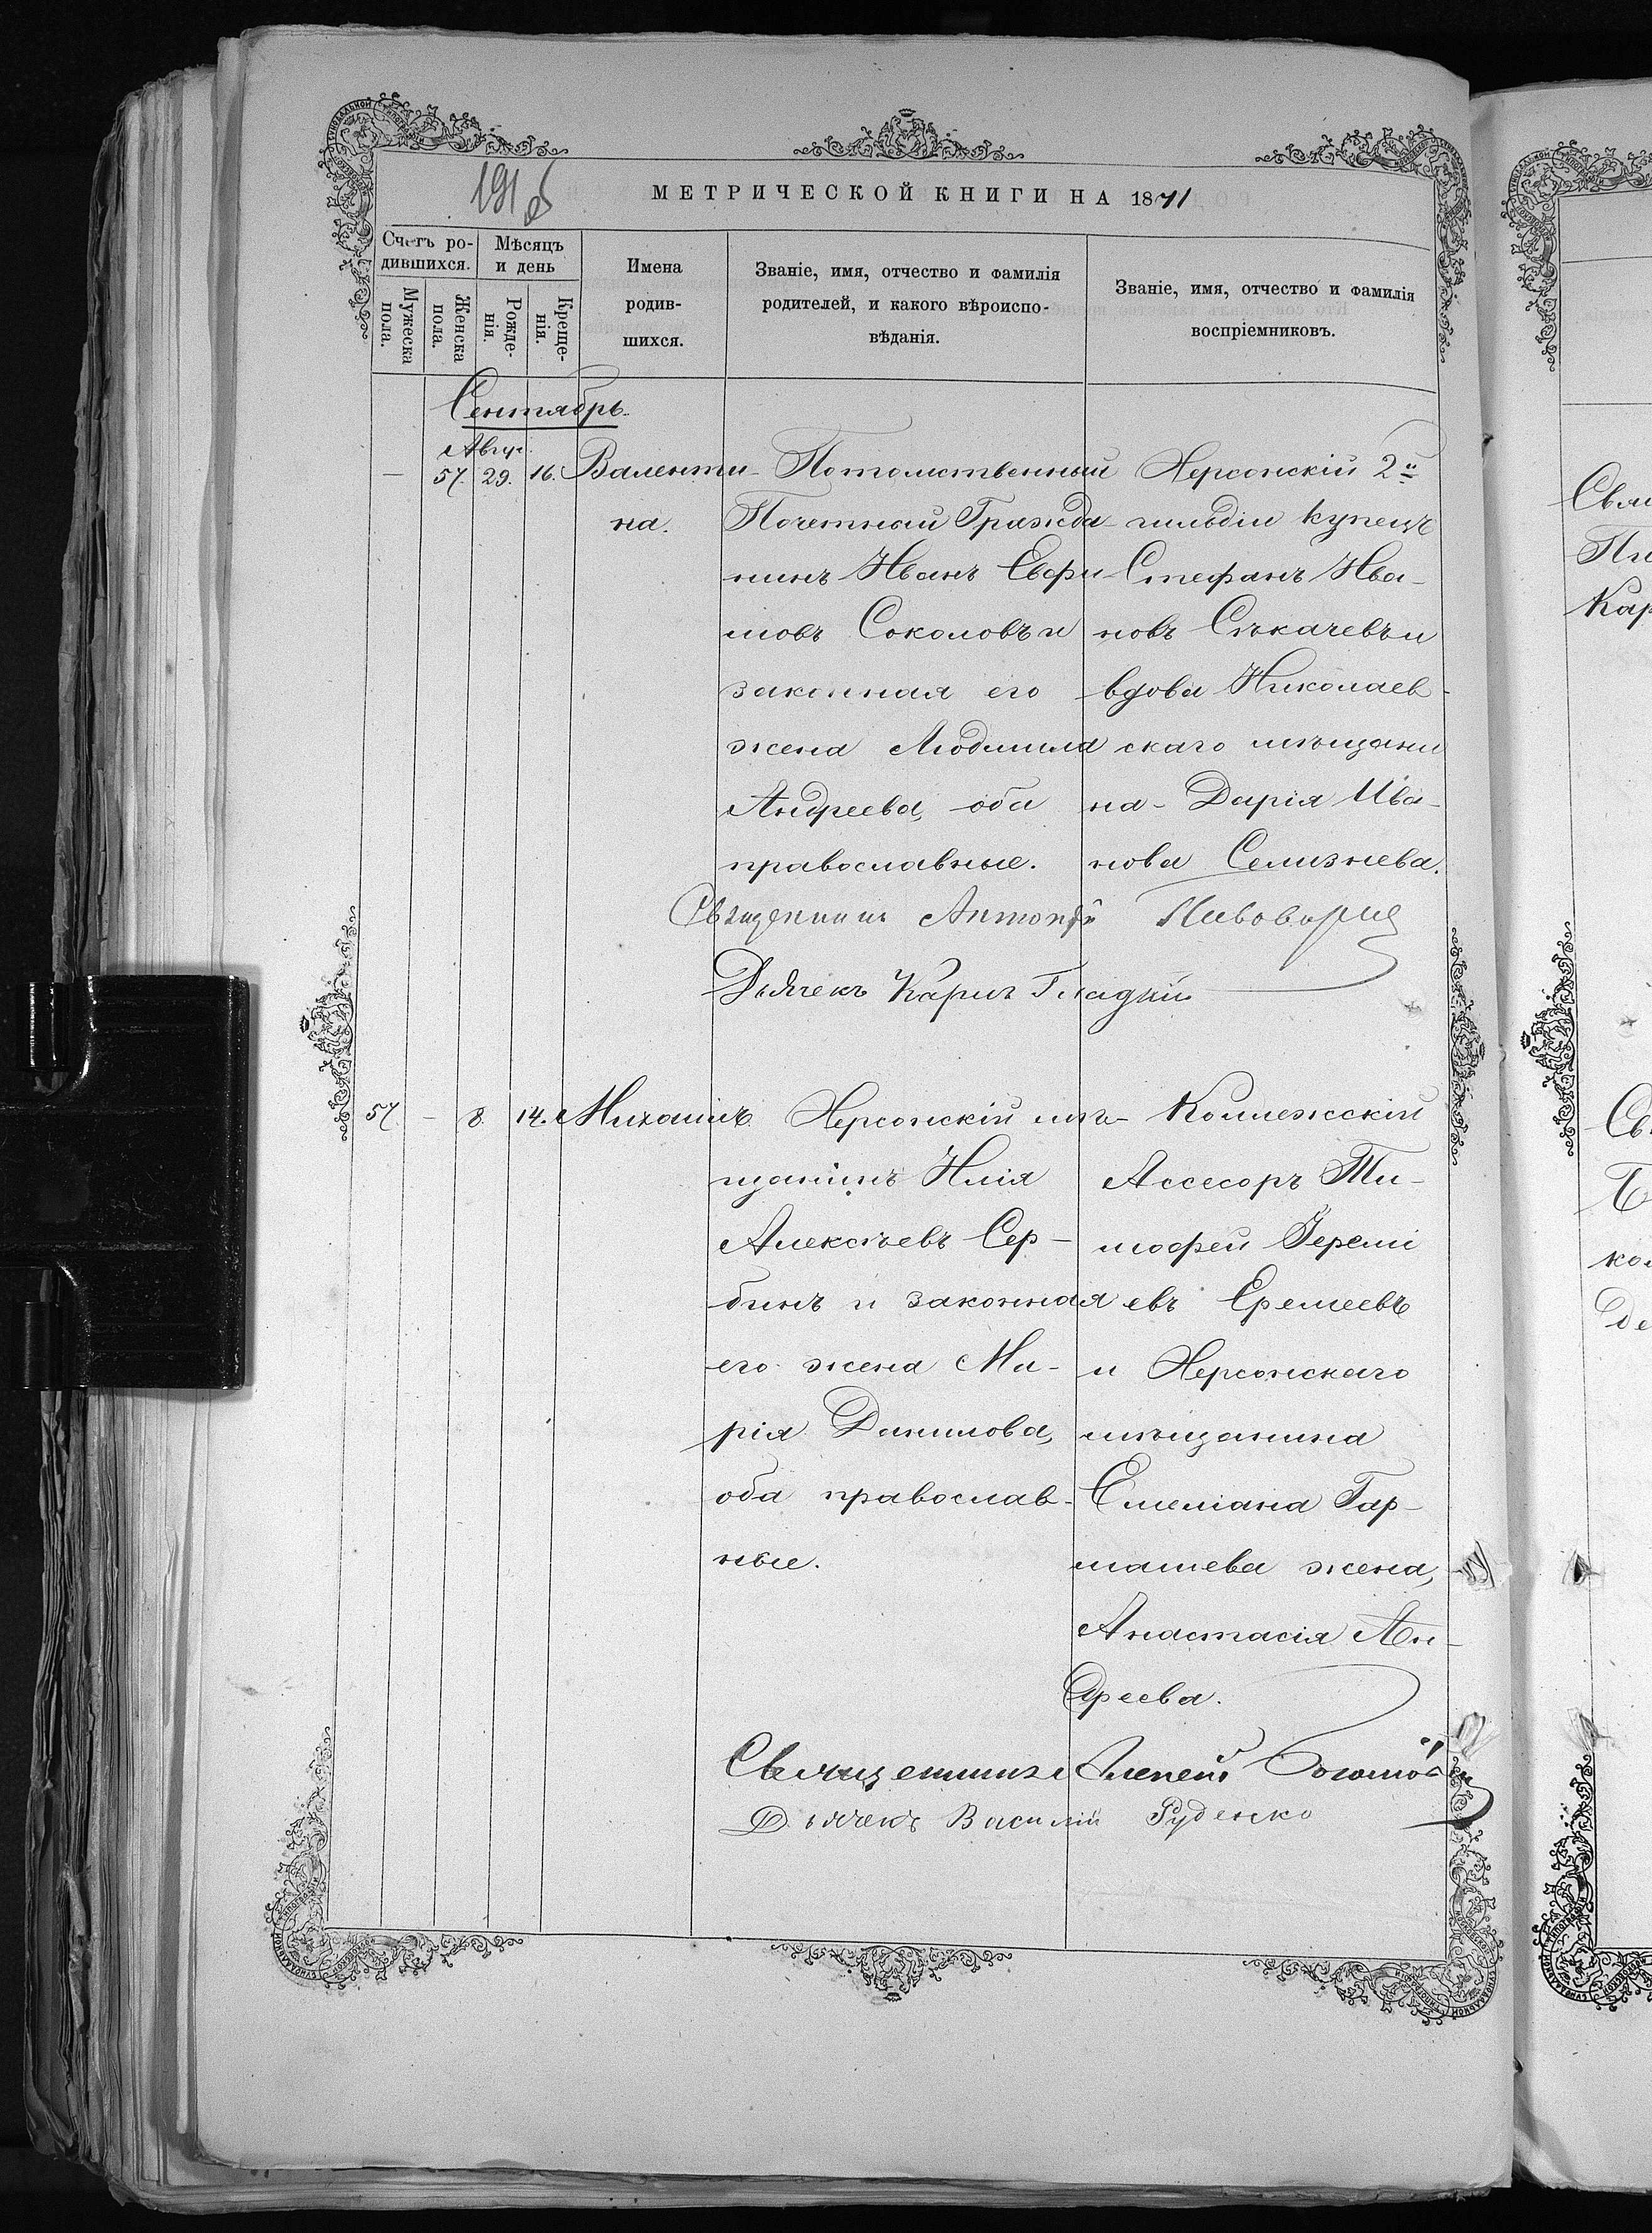 191 об
МЕТРИЧЕСКОЙ КНИГИ НА 1871
Счетъ ро-
дившихся.
Мужеска
пола.
Женска
пола.
Мѣсяцъ
и день
Рожде-
нія.
Креще-
нія.
Имена
родив-
шихся.
Званіе, имя, отчество и фамилія
родителей, и какого вѣроиспо-
вѣданія.
Званіе, имя, отчество и фамилія
воспріемниковъ.
Сентябрь.
Авгус.
— 57. 29. 16. Валенти-
на.
Потомственный
Почетный Гражда-
нинъ Иванъ Ефри-
мовъ Соколовъ и
законная его
жена Людмила
Андреева, оба
православные.
Херсонскій 2й
гильдіи купецъ
Стефанъ Ива-
новъ Секачевъ и
вдова Николаев-
скаго мѣщани
на- Дарія Ива-
нова Селизнева.
Священникъ Антоній Пивоваровъ
Дьячекъ Карпъ Гладкій
57. — 8. 14. Михаилъ.
Херсонскій мѣ-
щанинъ Илія
Алексѣевъ Сер-
бинъ и законная
его жена Ма-
рія Данилова,
оба православ-
ные.
Коллежскій
Ассесоръ Ти-
мофей Іеремі
евъ Еремеевъ
и Херсонскаго
мѣщанина
Емеліана Гар-
машева жена,
Анастасія Ан-
дреева.
Священникъ
Дьячекъ Василій Руденко
Свя